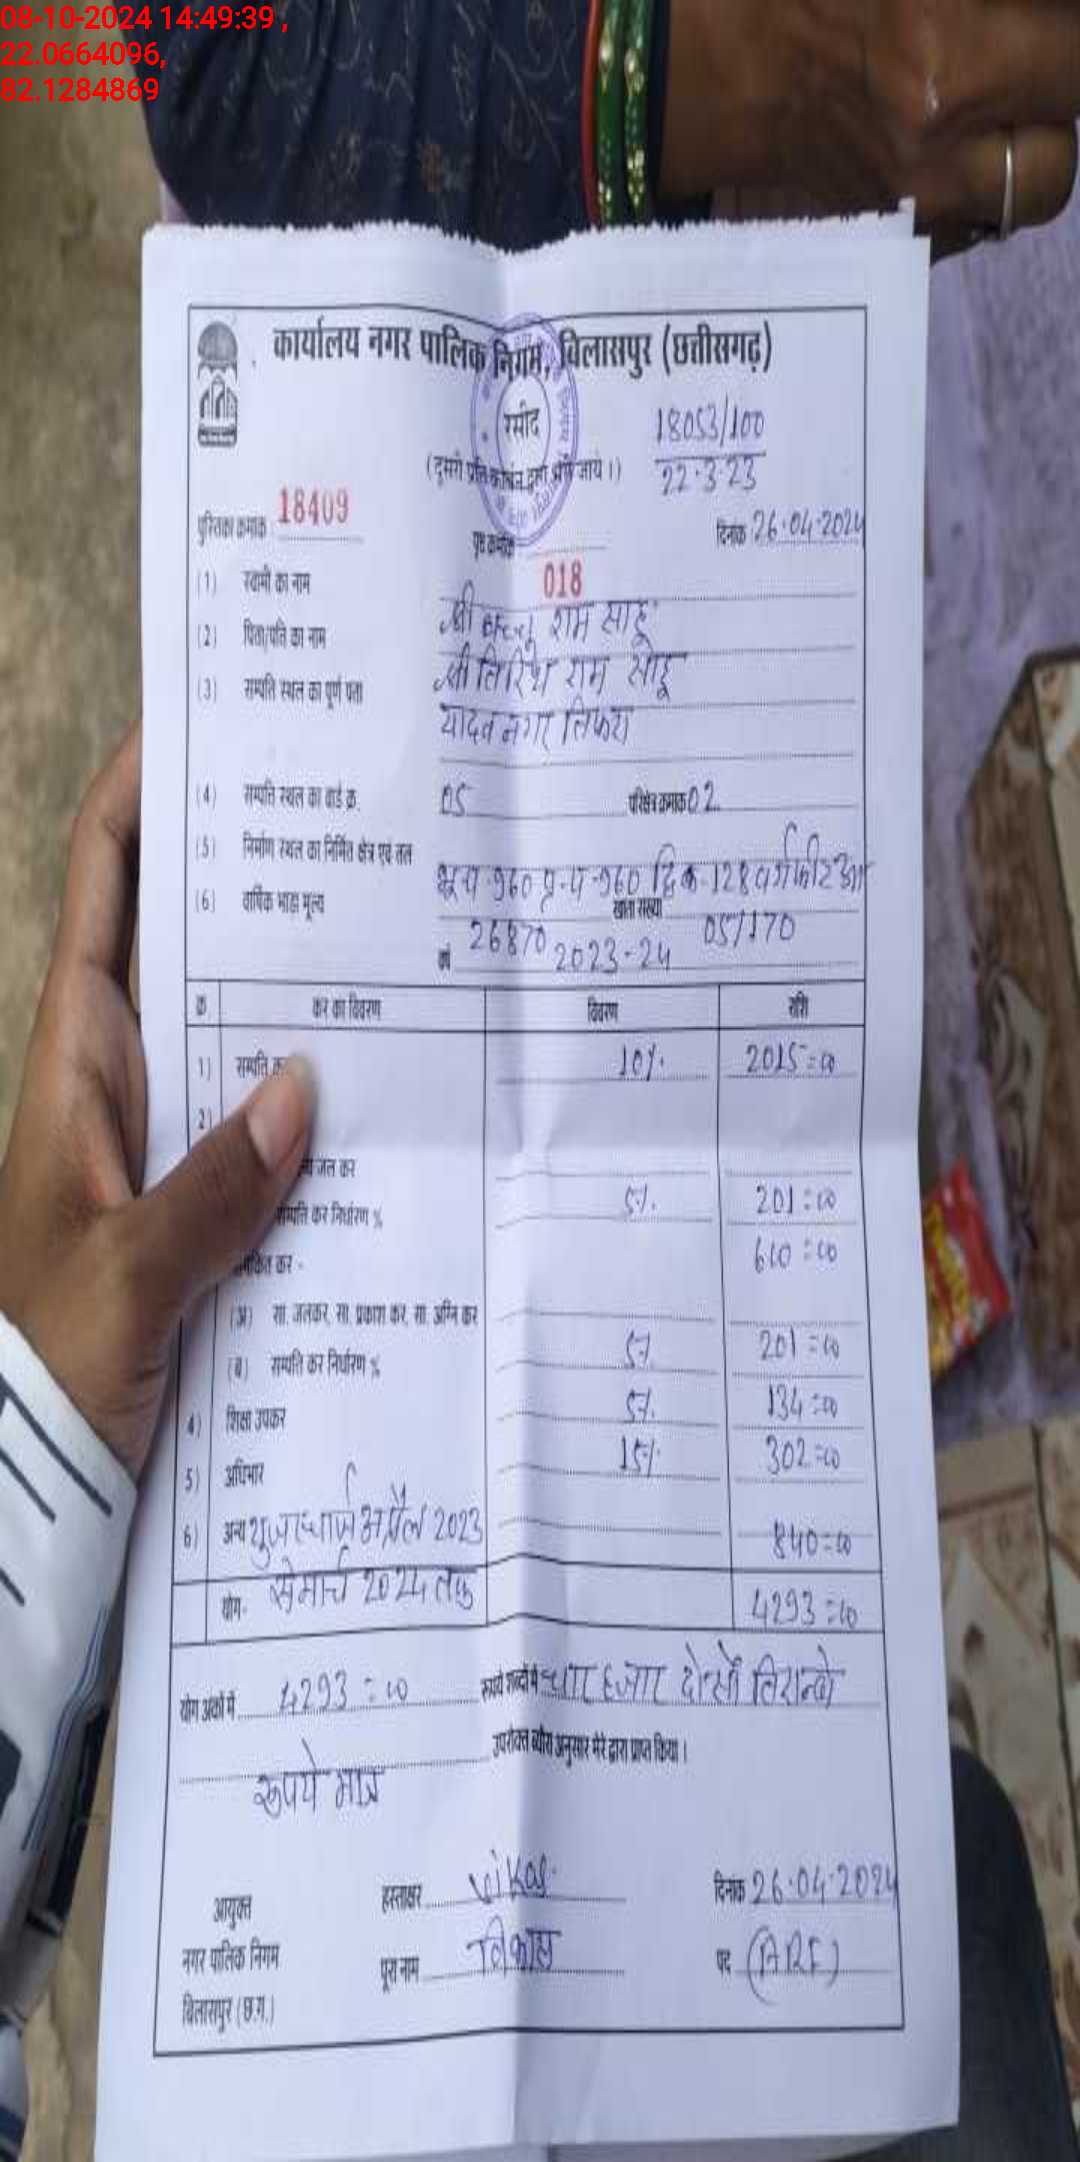 08-10-2024 14:49:39 ,
22.0664096,
82.1284869
कार्यालय नगर पालिक निगम, बिलासपुर (छत्तीसगढ़)
रसीद
18053/100
22.3.23
(दूसरी प्रति
जाये।)
पुस्तिका क्रमांक 18409
पृष्ठ क्रमांक 018
दिनांक 26.04.2024
(1) स्वामी का नाम
श्री राम साहू
(2) पिता/पति का नाम
श्री तिरिथ राम साहू
(3) सम्पति स्थल का पूर्ण पता
यादव नगर तिफरा
(4) सम्पति स्थल का वार्ड क्र. 05 परिक्षेत्र क्रमांक 02
(5) निर्माण स्थल का निर्मित क्षेत्र एवं तल
भू.प.960 प्र.प-960 द्वि.-128 वर्गफीट
(6) वार्षिक भाड़ा मूल्य 26870 खाता संख्या 05/170
वर्ष 2023-24
क्र. कर का विवरण विवरण राशि
1) सम्पति क 10%. 2015=00
2)
जल कर
सम्पति कर निर्धारण % 5%. 201=00
कित कर - 600=00
(अ) सा. जलकर, सा. प्रकाश कर, सा. अग्नि कर
(ब) सम्पति कर निर्धारण % 5% 201=00
4) शिक्षा उपकर 5%. 134=00
5) अधिभार 15% 302=00
6) अन्य यूजर चार्ज अप्रैल 2023 840=00
से मार्च 2024 तक
योग- 4293=00
योग अंकों में 4293=00 रूपये शब्दों में चार हजार दो सौ तिरान्बे
रूपये मात्र
उपरोक्त ब्यौरा अनुसार मेरे द्वारा प्राप्त किया।
आयुक्त
नगर पालिक निगम
बिलासपुर (छ.ग.)
हस्ताक्षर vikas.
दिनांक 26.04.2024
पूरा नाम विकास
पद (ARI)